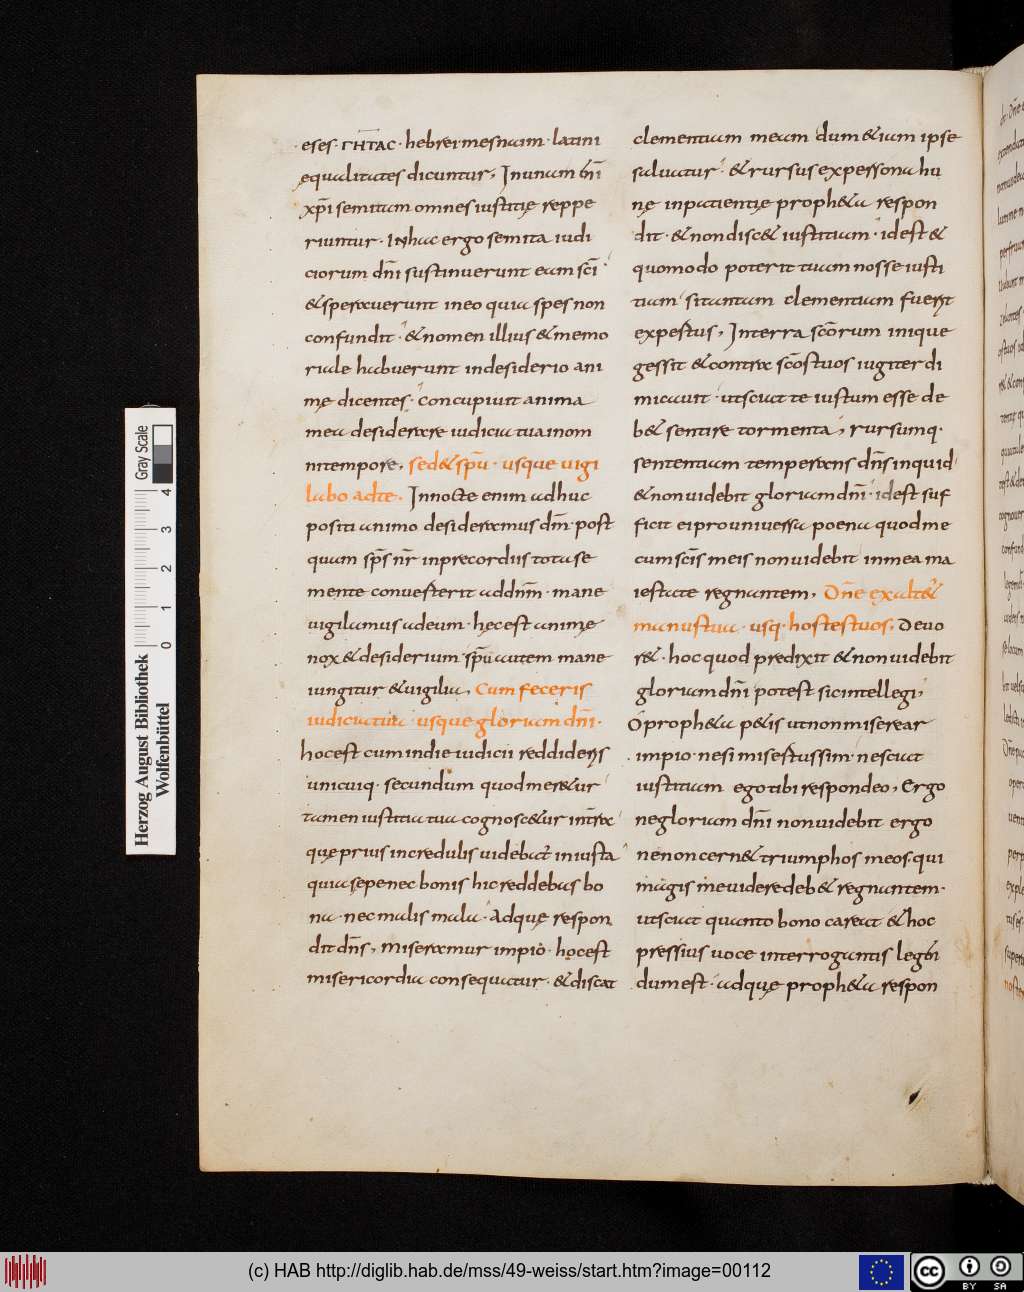 eses · ΓΗΤΑC · hebrei mesuaim · latini
equalitates dicuntur, In unam dñi
xp̄i semitam omnes iustitię reppe
riuntur · IN hac ergo semita iudi
ciorum dñi sustinuerunt eam sc̄i ·
& speraverunt in eo quia spes non
confundit · & nomen illius & memo
riale habuerunt in desiderio ani
mę dicentes · concupiuit anima
mea desiderare iudicia tua in om
ni tempore, sed & sp̄u · usque uigi
labo ad te. In nocte enim adhuc
positi animo desideramus dm̄ · post
quam sp̄s nr̄ in precordiis tota se
mente conuesterit ad dn̄m · mane
uigilamus ad eum · hęc est animę
nox & desiderium · sp̄u autem mane
iungitur & uigilia, Cum feceris
iudicia tua usque gloriam dn̄i ·
hoc est cum in die iudicii reddideris
unicuiq · secundum quod mer&ur
tamen iustitia tua cognosc&ur in t̄rac
que prius incredulis uidebat̄ iniusta
quia sepe nec bonis hic reddebas bo
na · nec malis mala · Adque respon
dit dn̄s, miseramur impio · hoc est
misericordia consequatur · & discat
clementiam meam dum &iam ipse
saluatur · & rursus ex persona hu
ne inpatientię proph&a respon
dit · & non disc& iustitiam · id est &
quomodo poterit tuam nosse iusti
tiam si tantam clementiam fuerit
expertus, In terra scōrum inique
gessit & contra scōs tuos iugiter di
micauit · ut sciat te iustum esse de
b& sentire tormenta, rursumq ·
sententiam temperans dn̄s inquid
& non uidebit gloriam dn̄i · id est suf
ficit ei pro uniuersa poena quod me
cum scīs meis non uidebit in mea ma
iestate regnantem, Dn̄e exalt&
manus tua · usq · hostes tuos, Deuo
r& · hoc quod predixit & non uidebit
gloriam dn̄i potest sic intellegi,
O proph&a p&is ut non miserear
impio · nesi misertus sim · nesciat
iustitiam ego tibi respondeo, Ergo
ne gloriam dn̄i non uidebit ergo
ne non cern& triumphos meos · qui
magis me uidere deb& regnantem ·
ut sciat quanto bono careat & hoc
pressius uoce interrogantis legen
dum est · adque proph&a respon
Herzog August Bibliothek
Wolfenbüttel
0 1 2 3 4
Gray Scale
(c) HAB http://diglib.hab.de/mss/49-weiss/start.htm?image=00112
cc
BY SA